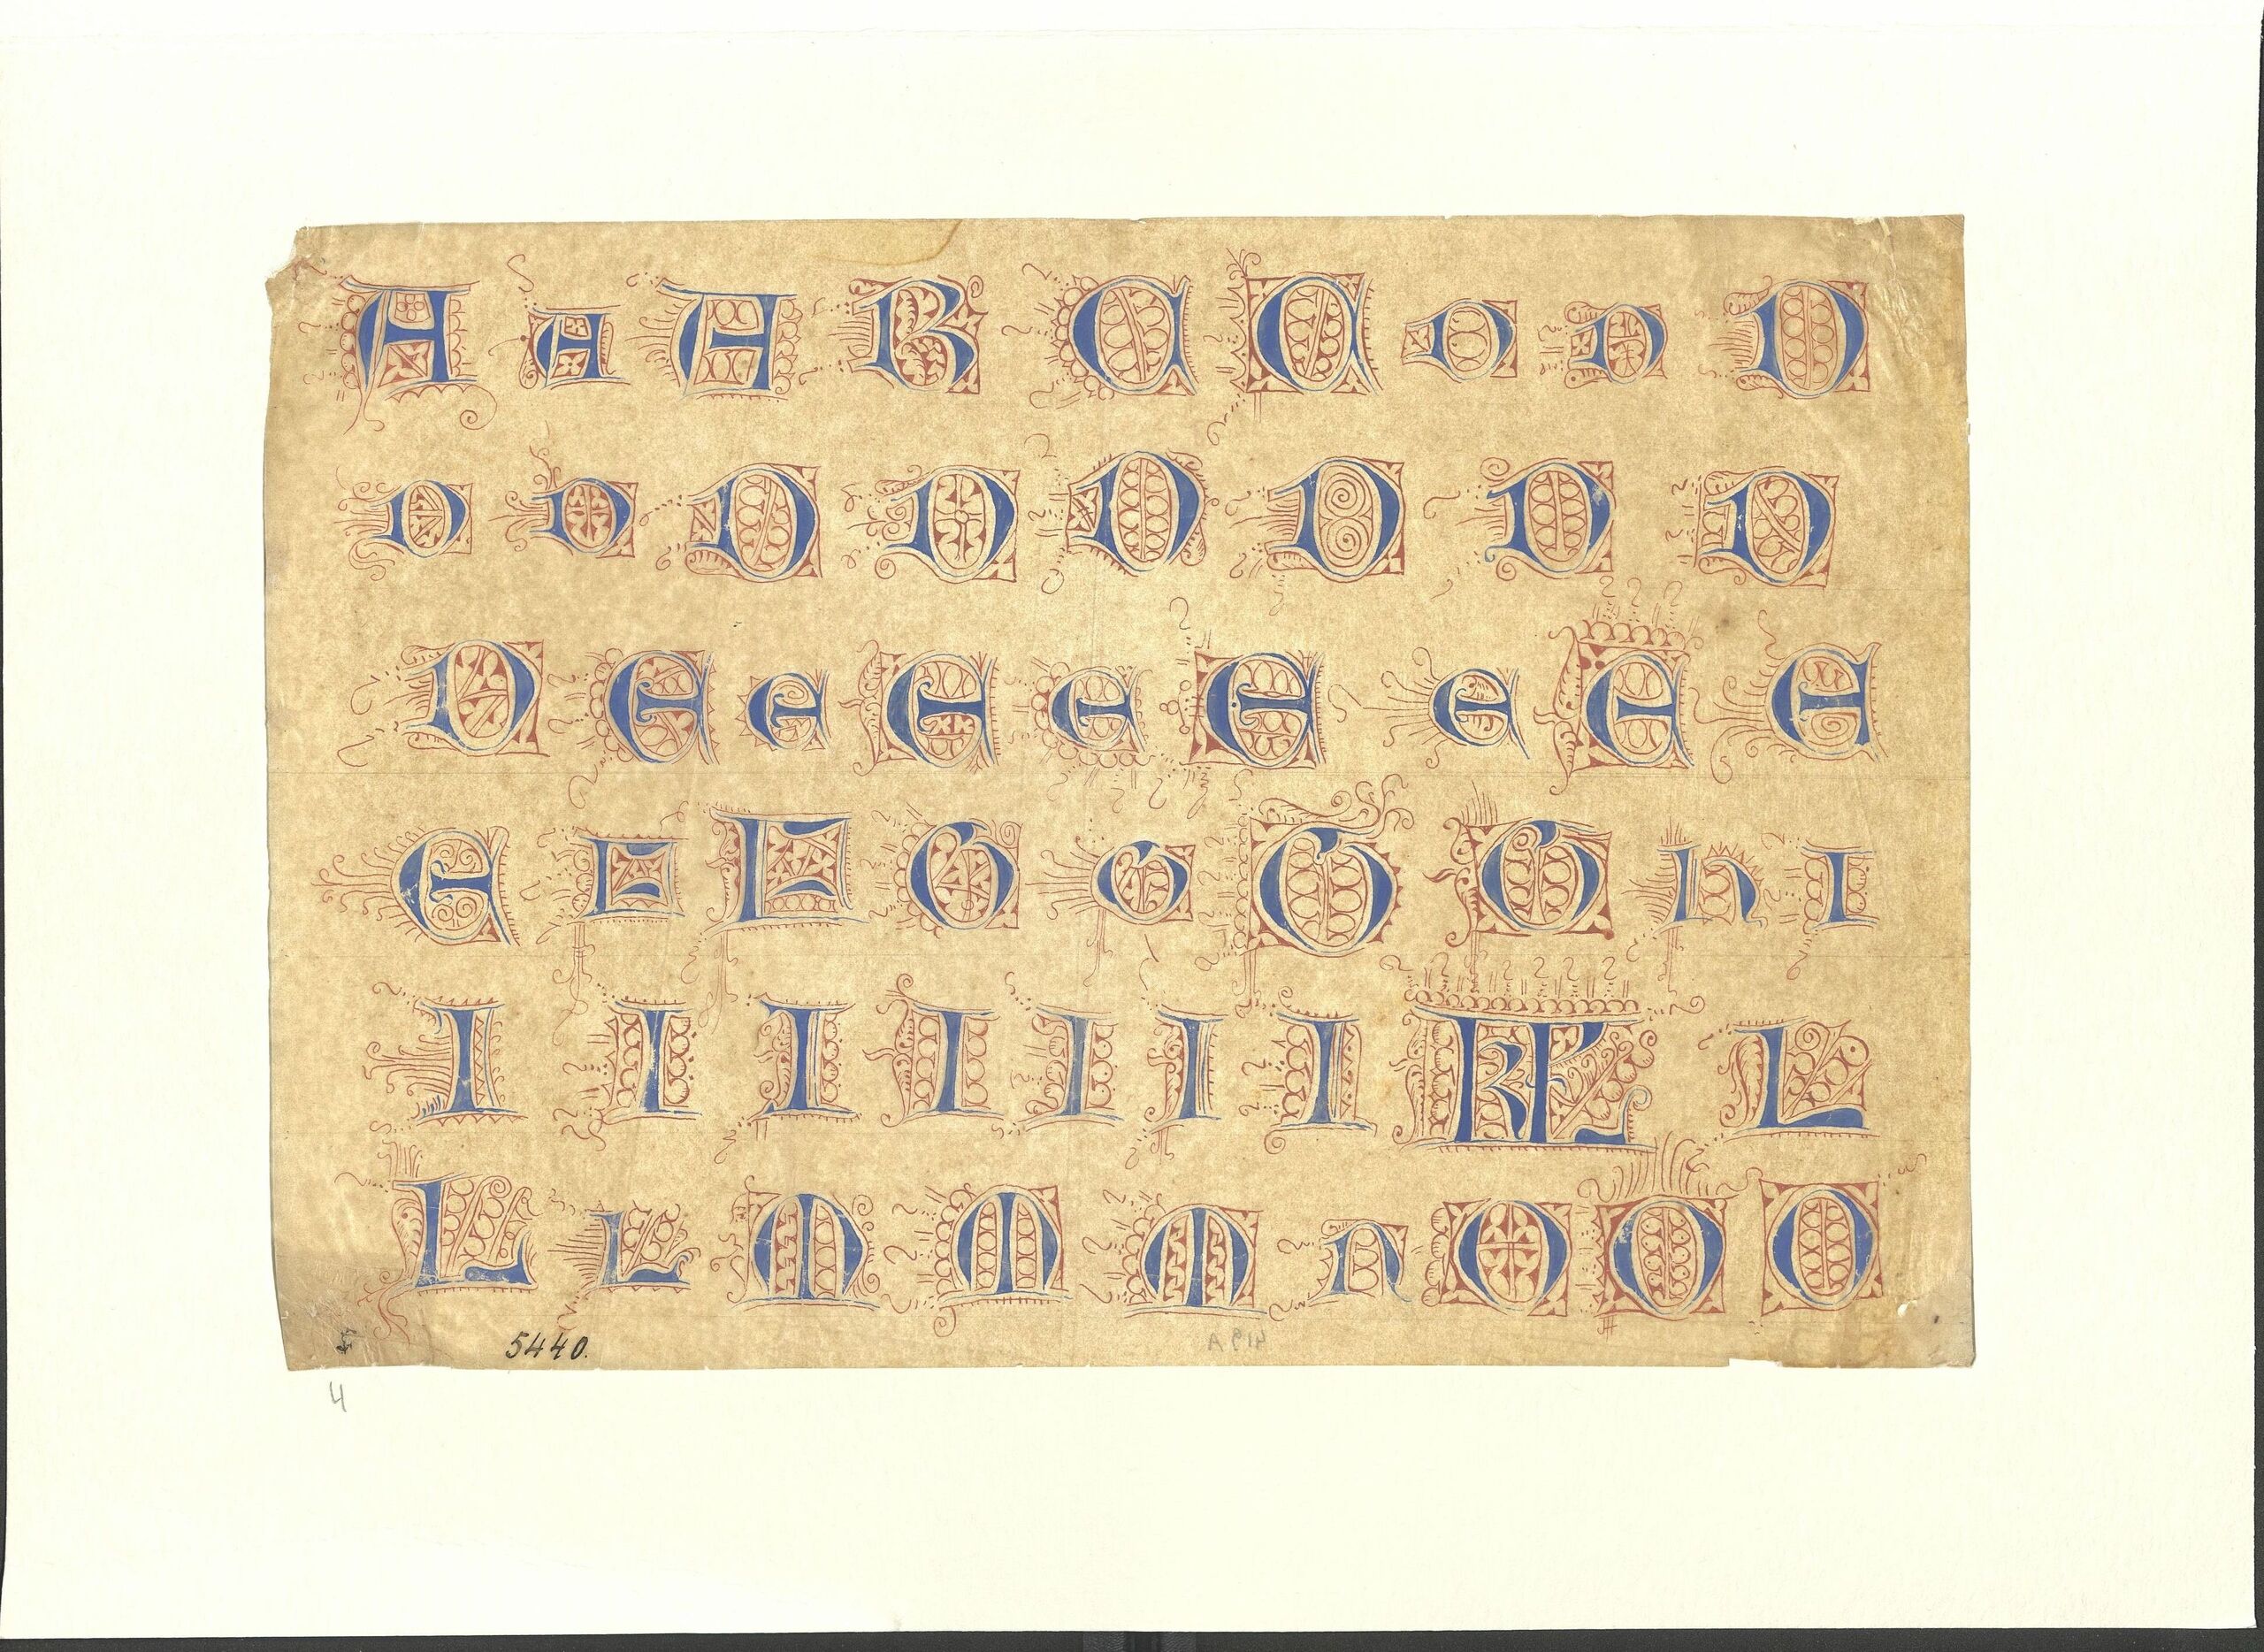 A A A B C C D D D
D D D D D D D D
D E E E E E E E E
E F F G G G G H I
I I I I I I I KL L
L L M M M N O O O
5440.
4